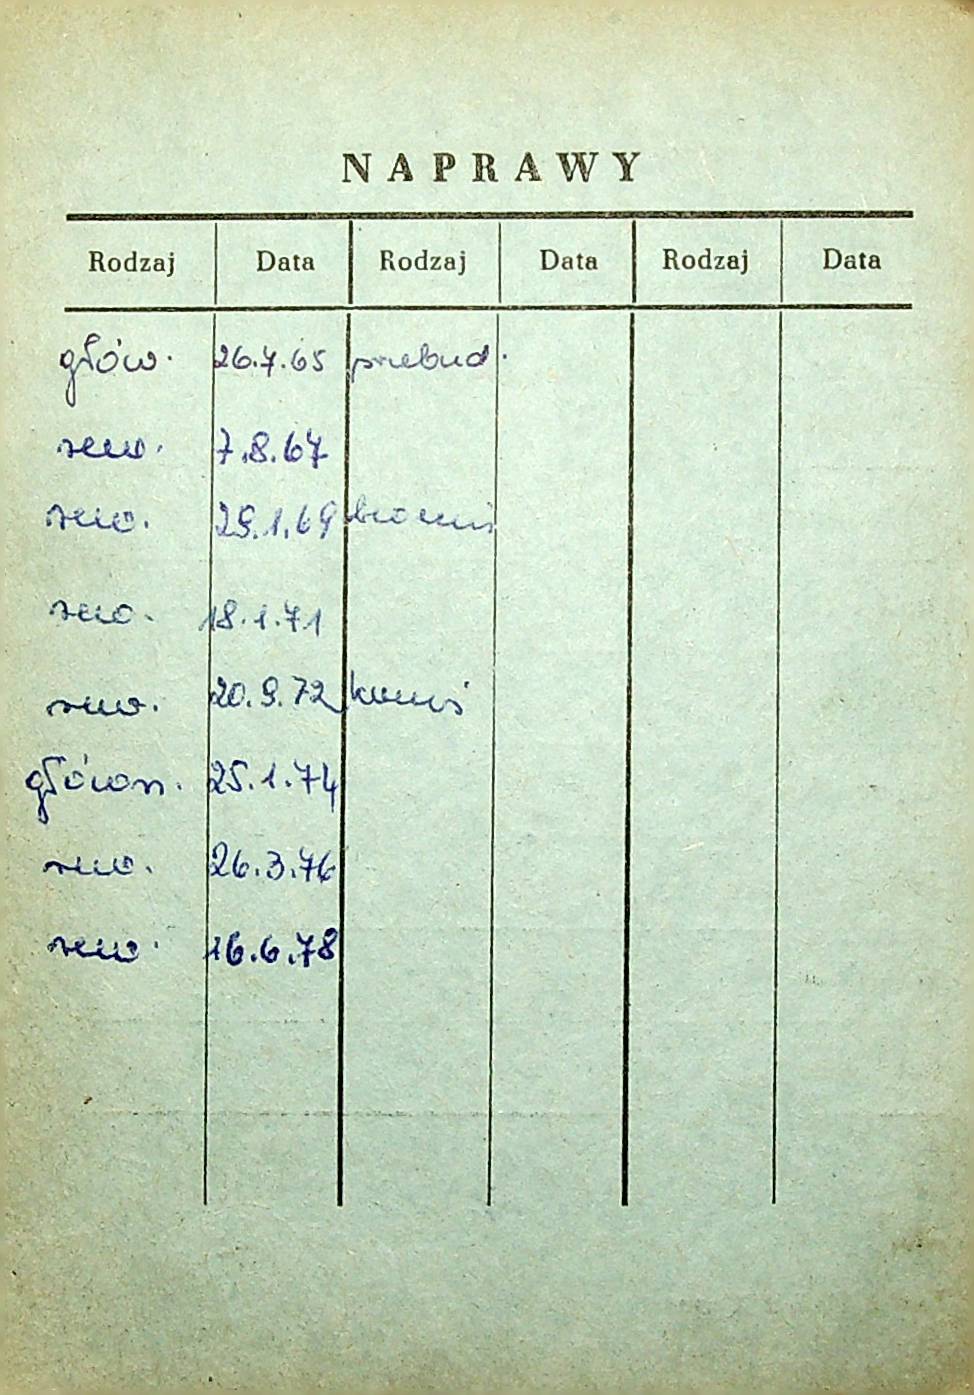 NAPRAWY
Rodzaj Data Rodzaj Data Rodzaj Data
głów. 26.7.65 przebud.
rew. 7.8.67
rew. 29.1.69
rew. 18.1.71
rew. 20.9.72
główn. 25.1.74
rew. 26.3.76
rew. 16.6.78